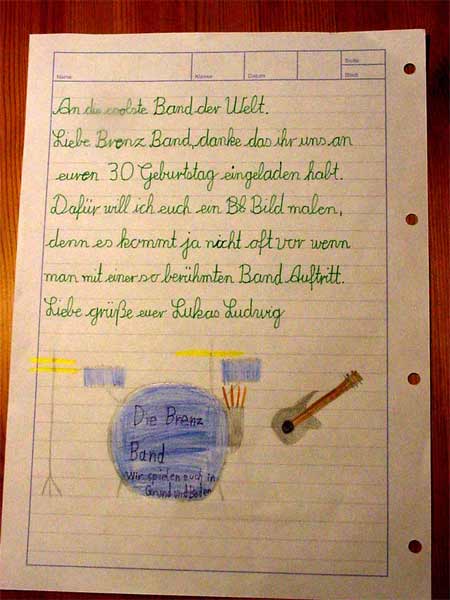 Name Klasse Datum Seite
Blatt
An die coolste Band der Welt.
Liebe Brenz Band, danke das ihr uns an
euren 30 Geburtstag eingeladen habt.
Dafür will ich euch ein Bild malen,
denn es kommt ja nicht oft vor wenn
man mit einer so berühmten Band Auftritt.
Liebe grüße euer Lukas Ludwig
Die Brenz
Band
Wir spielen euch in
Grund und Boden